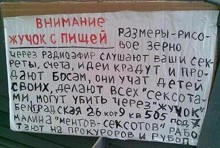 ВНИМАНИЕ
ЖУЧОК С ПИЩЕЙ РАЗМЕРЫ-РИСО-
ВОЕ ЗЕРНО
ЧЕРЕЗ РАДИОЭФИР СЛУШАЮТ ВАШИ СЕК-
РЕТЫ, СЧЕТА, ИДЕИ КРАДУТ И ПРО-
ДАЮТ БОСАМ, ОНИ УЧАТ ДЕТЕЙ
СВОИХ, ДЕЛАЮТ ВСЕХ "СЕКСОТА-
МИ, МОГУТ УБИТЬ ЧЕРЕЗ "ЖУЧОК"
БЕЛГРАДСКАЯ 26 КОР 9 КВ 505 ПОД
МАЛИНА "МЕНТОВ-СЕКСОТОВ" РАБО
ТАЮТ НА ПРОКУРОРОВ И РУБОП